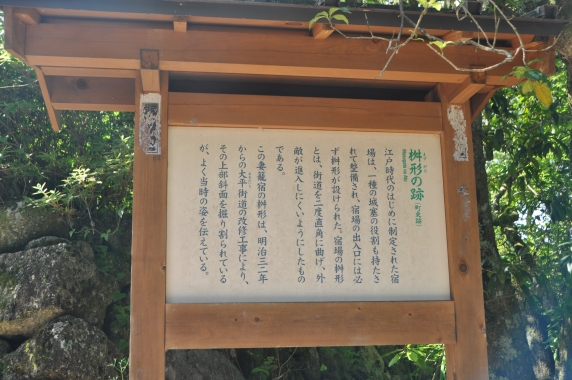 桝形の跡（町史跡）
江戸時代のはじめに制定された宿
場は、一種の城塞の役割も持たさ
れて整備され、宿場の出入口には必
ず桝形が設けられた。宿場の桝形
とは、街道を二度直角に曲げ、外
敵が進入しにくいようにしたもの
である。
この妻籠宿の桝形は、明治三二年
からの大平街道の改修工事により、
その上部斜面を掘り割られている
が、よく当時の姿を伝えている。